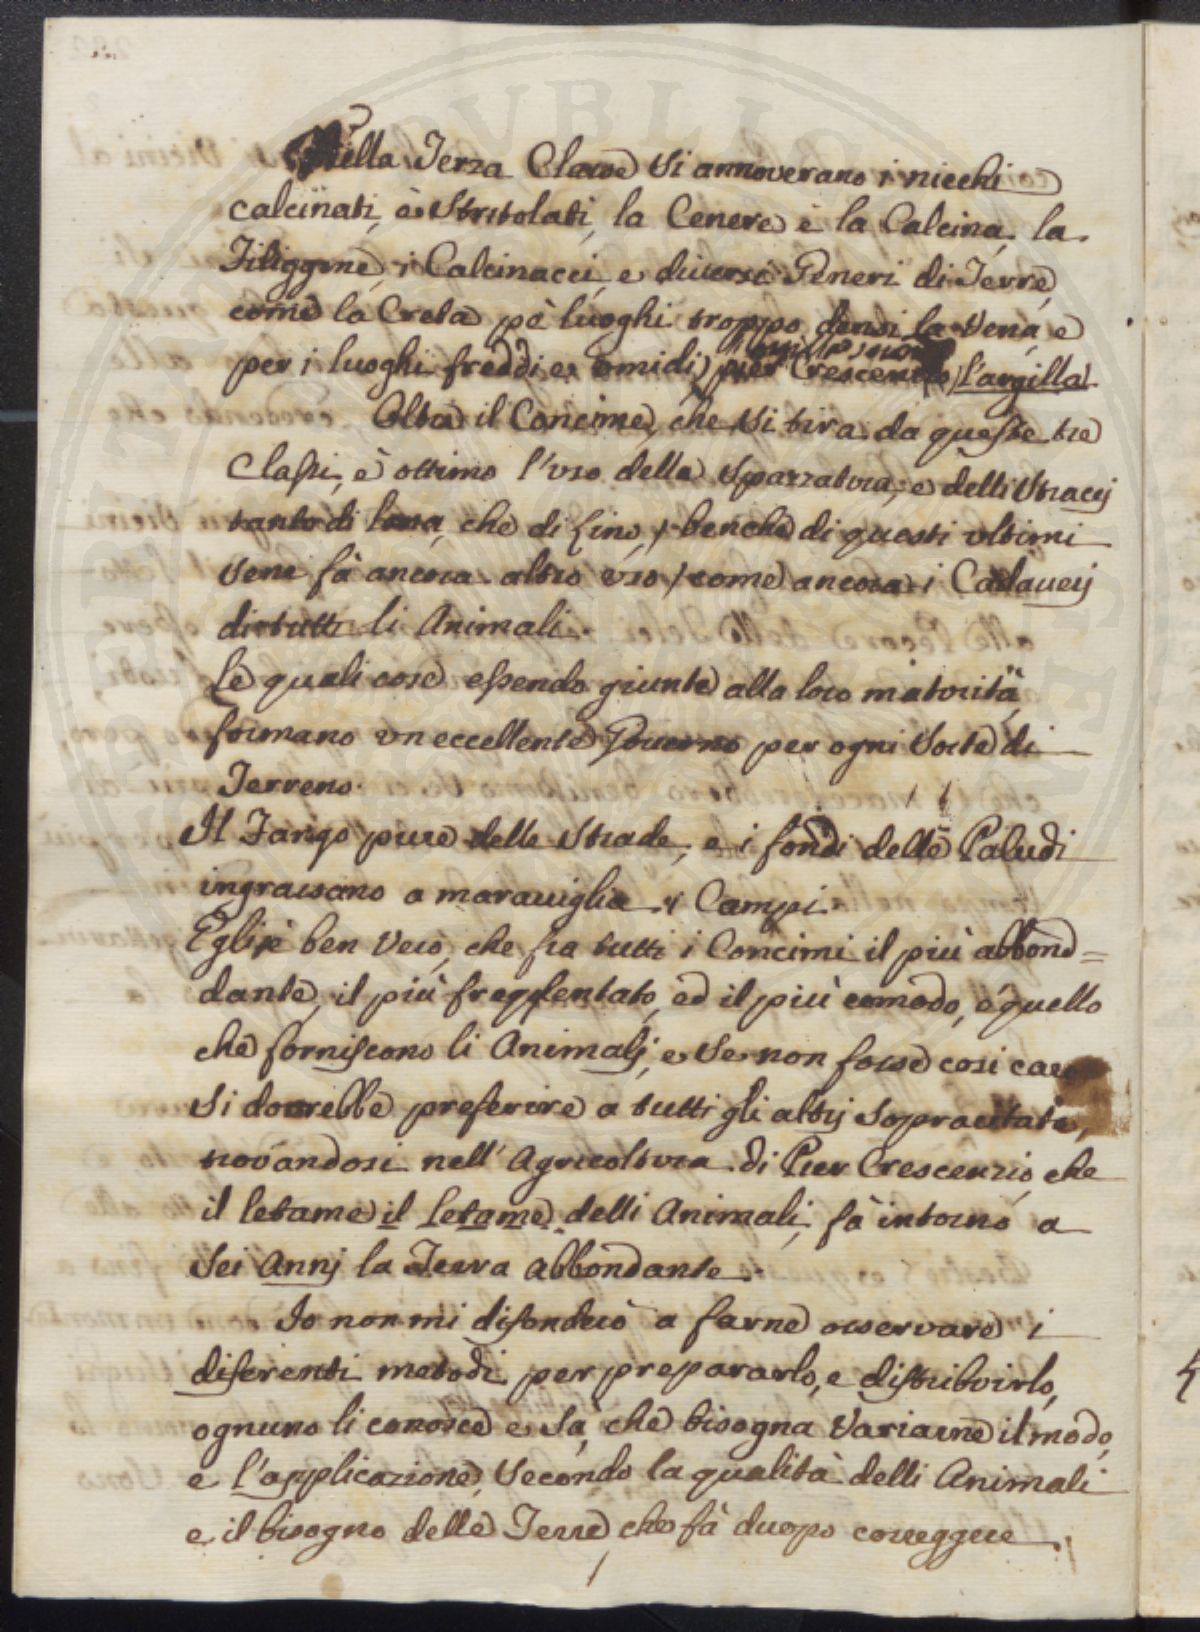 Nella Terza Classe si annoverano i nicchi
calcinati, è stritolati, la Cenere e la Calcina, la
Filiggine, i Calcinacci, e diversi Generi di Terre,
come la Creta pe luoghi troppo densi la Vena, e
per i luoghi freddi e omidi, Pier Crescenzio, l'argilla.
Oltre il Concime, che si tira da queste tre
Classi, è ottimo l'uso della Spazzatura, e delli Stracij
tanto di lana, che di Lino, benche di questi ultimi
sene fà ancora altro uso, come ancora i Cadaverij
di tutti li Animali.
Le quali cose essendo giunte alla loro maturità,
formano un eccellente Governo per ogni Sorte di
Terreno.
Il Fango pure delle Strade, e i fondi delle Paludi
ingrassano a maraviglia i Campi.
Egli è ben Vero, che fra tutti i Concimi il più abbond=
dante, il più freqqentato, ed il più comodo, è quello
che forniscono li Animalj, e se non fosse cosi caro
si dovrebbe preferire a tutti gli altrj sopracitati,
trovandosi nell' Agricoltura di Pier Crescenzio, che
il letame il Letame delli Animali, fà intorno a
Sei Annj la Terra abbondante.
Io non mi difonderò a farne osservare i
diferenti metodi per prepararlo, e distribuirlo,
ognuno li conosce e sa, che bisogna Variarne il modo,
e l'applicazione, Secondo la qualità delli Animali
e il bisogno delle Terre che fà duopo correggere.